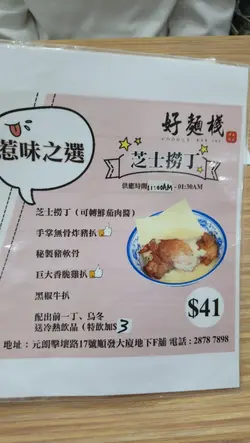 好麵棧
NOODLE BAR INC
惹味之選
芝士撈丁
供應時間11:00AM - 01:30AM
芝士撈丁（可轉鮮茄肉醬）
手掌無骨炸豬扒
秘製豬軟骨
巨大香脆雞扒
黑椒牛扒
$41
配出前一丁、烏冬
送冷熱飲品（特飲加$3
地址：元朗擊壤路17號順發大廈地下F舖 電話：2878 7898